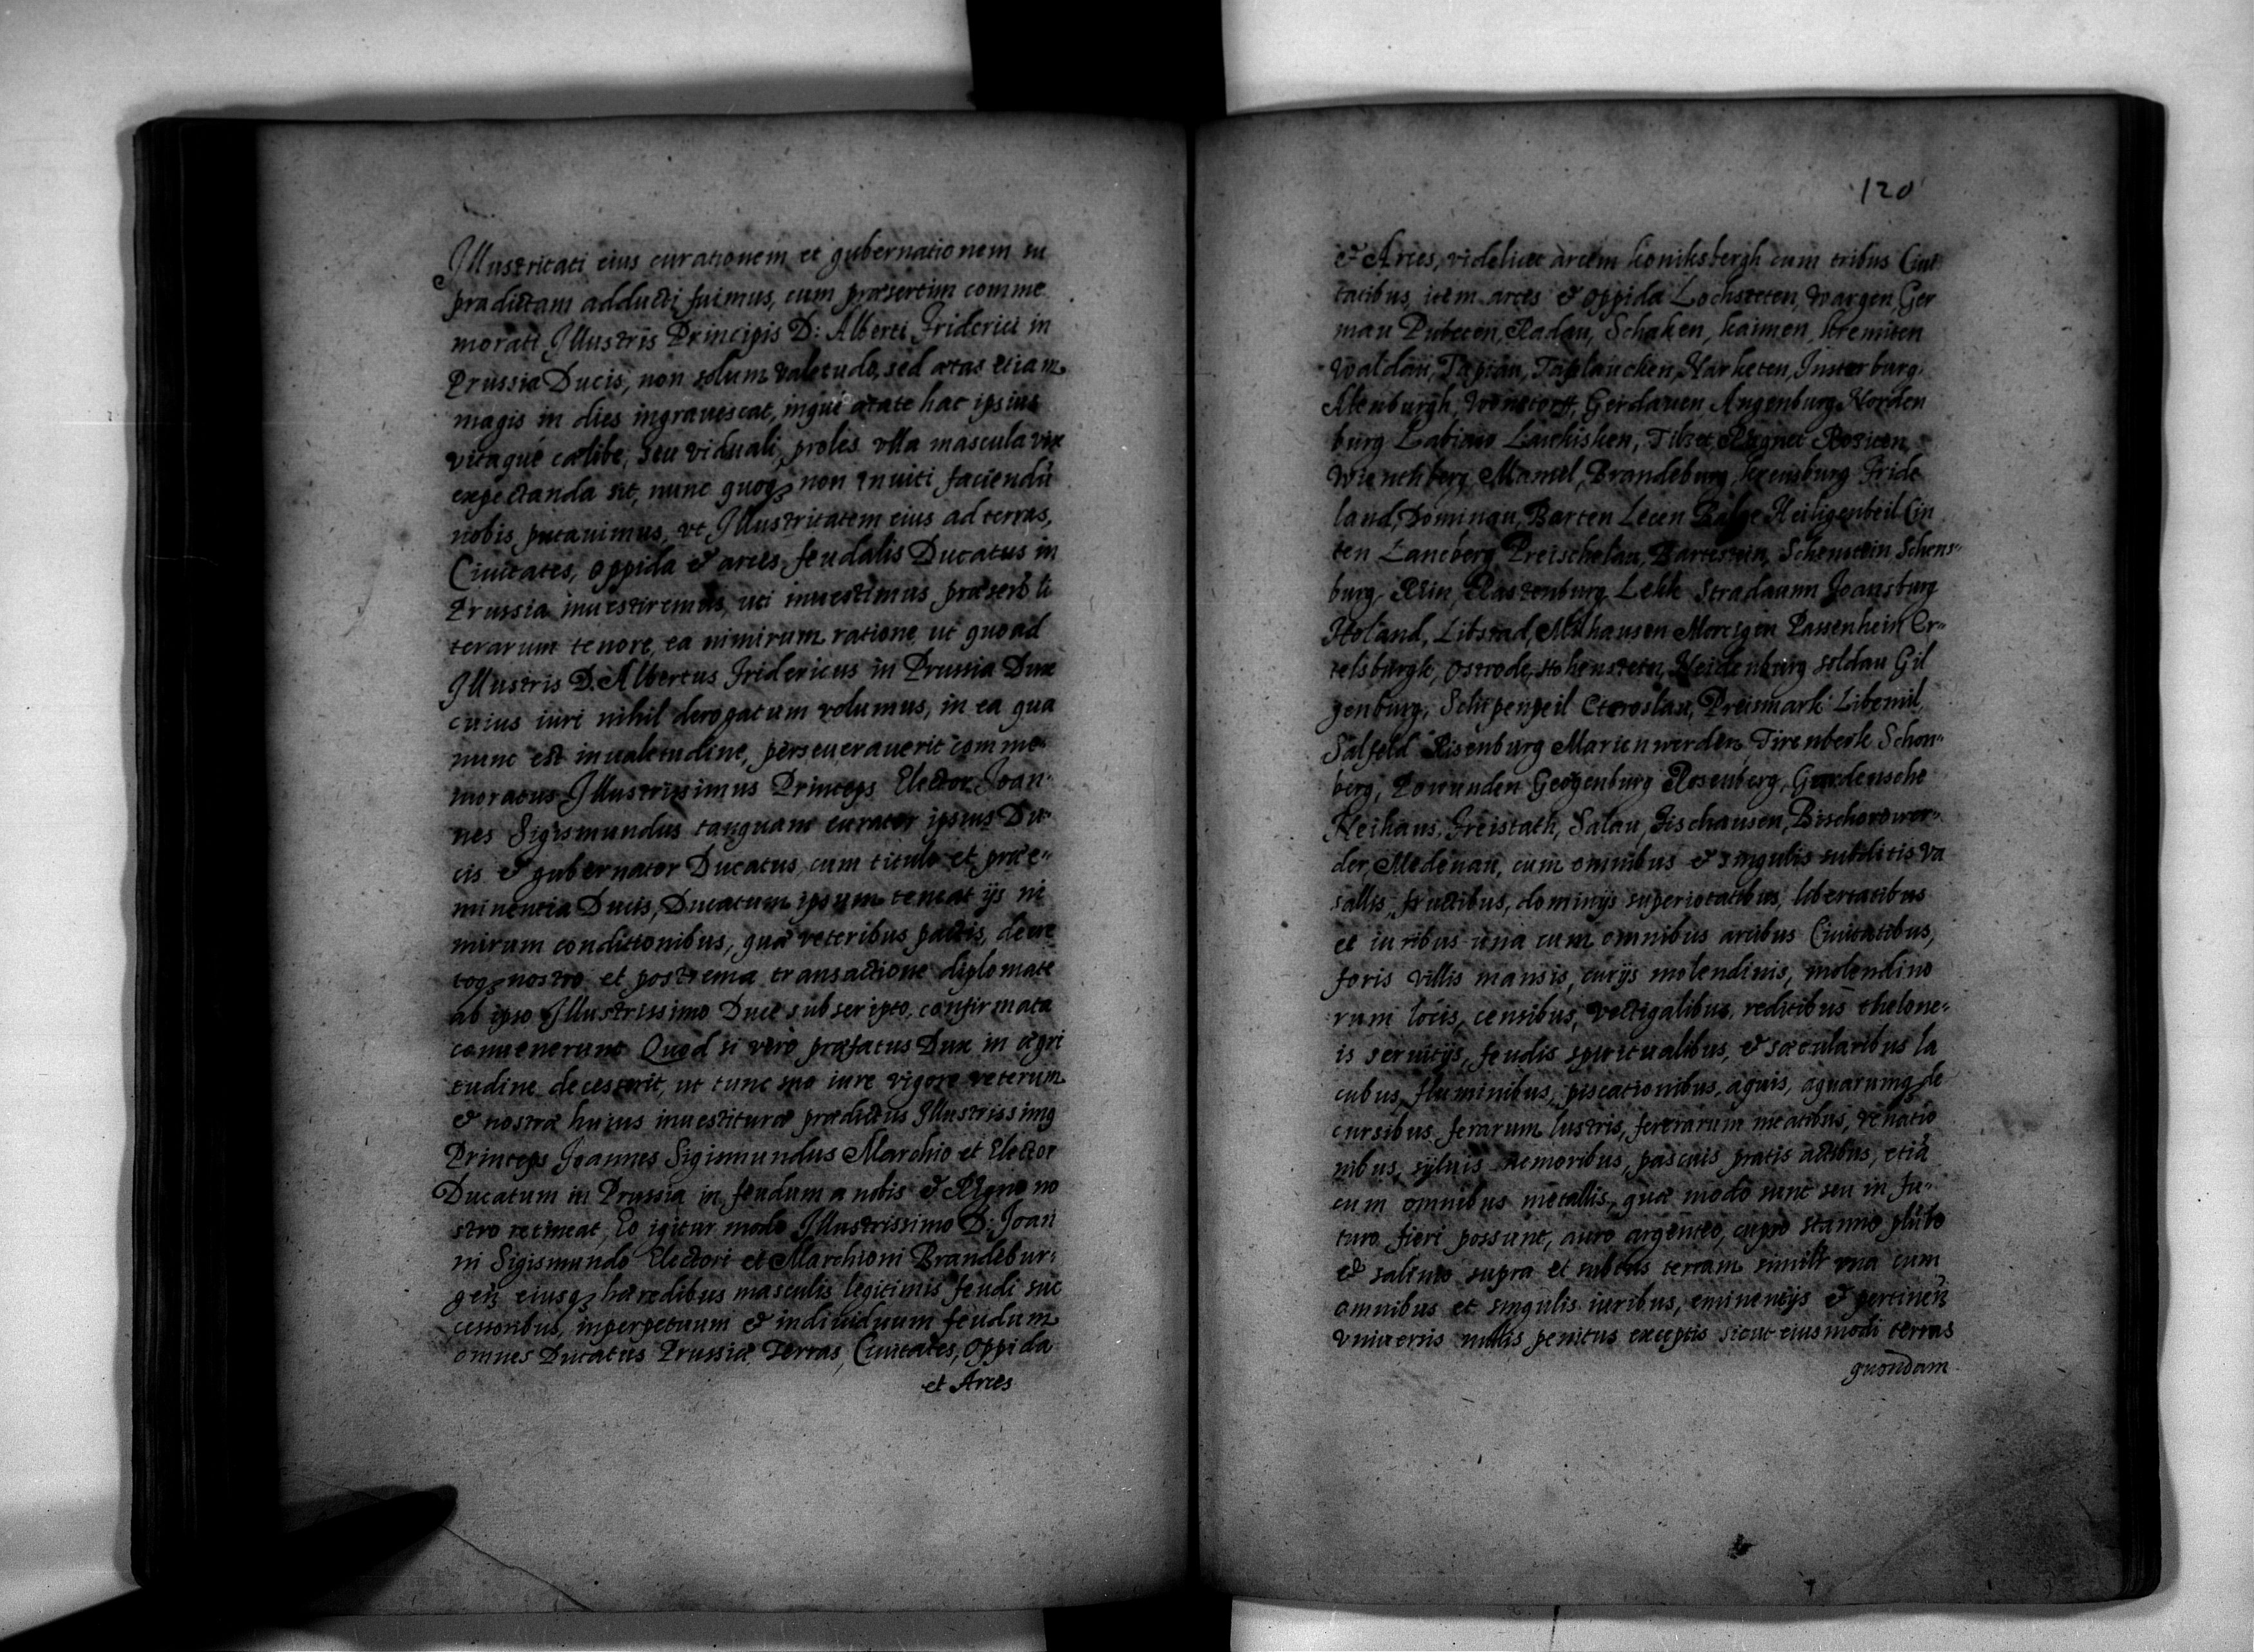 Illustritati eius curationem et gubernationem su
pradictam adducti fuimus, cum præsertim comme
morati Illustris Principis D: Alberti Friderici in
Prussia Ducis, non solum valetudo, sed ætas etiam
magis in dies ingrauescat, inque ætate hac ipsius
vitaque cælibe, seu viduali, proles vlla mascula vix
expectanda sit, nunc quoq3 non inuiti faciendū
nobis putauimus, vt Illustritatem eius ad terras,
Ciuitates, oppida & arces feudalis Ducatus in
Prussia inuestiremus, uti inuestimus præsenti li
terarum tenore, ea nimirum ratione ut quoad
Illustris D. Albertus Fridericus in Prussia Dux
cuius iuri nihil derogatum volumus, in ea qua
nunc est inualetudine, perseuerauerit comme-
moratus Illustrissimus Princeps Elector Joan-
nes Sigismundus tanquam curator ipsius Du-
cis & gubernator Ducatus cum titulo et præe-
minentia Ducis, Ducatum ipsum teneat ijs ni
mirum conditionibus, quæ veteribus pactis, decre
toq3 nostro et postrema transactione diplomate
ab ipso Illustrissimo Duce subscripto, confirmata
conuenerunt Quod si vero præfatus Dux in ægri
tudine decesserit, ut tunc suo iure vigore veterum
& nostræ huius inuestituræ prædictus Illustrissimg
Princeps Joannes Sigismundus Marchio et Elector
Ducatum in Prussia in feudum a nobis & Regno no
stro retineat, Eo igitur modo Illustrissimo D: Joan
ni Sigismundo Electori et Marchioni Brandebur-
gen eiusq3 hæredibus masculis legitimis feudi suc
cessoribus, inperpetuum & indiuiduum feudum
omnes Ducatus Prussiæ Terras, Ciuitates, oppida
et Arces
120
& Arces, videlicet arcem koniksbergh cum tribus Ciui
tatibus, item arces & oppida Lochsteten, Wargen, Ger
mau Pubeten, Radau, Schaken, kaimen, kremiten
Waldau, Tapiau, Taplaucken, Narketen, Insterburg,
Alenburgh, Wonstorff, Gerdauen Angenburg Norden
burg Labiau Laukisken, Tilzet, Ragnet Rositen
Winenchberg Mamel, Brandeburg, kreusburg Fride
land, Dominau, Barten Lecen Balge Heiligenbeil Cin
ten Lancberg Preischelau, Bartestein, Schenstein Schens-
burg Rein, Rastenburg Lekk Stradaann Joansburg
Holand, Libstad, Milhausen Moreigen Passenhein Or-
telsburgk, Ostrode, Hohenstein, Neidenburg soldau Gil
genburg, Schipenpeil Cteroslau, Preismark Libemil,
Salfeld Risenburg Marienwerder Tirenberk Schon-
berg, Powunden Geogenburg Rosenberg, Gardensche
Neihaus, Freistath, Salau, Fischausen, Bischoowor-
der, Medenau, cum omnibus & singulis subditis Va
sallis, fructibus, dominijs superiotatibus, libertatibus
et iuribus una cum omnibus arcibus Ciuitatibus,
foris villis mansis, curijs molendinis, molendino
rum locis, censibus, vectigalibus, reditibus thelone-
is seruitijs, feudis spiritualibus, & sæcularibus la
cubus, fluminibus, piscationibus, aquis, aquarumq3 de
cursibus ferarum lustris, fererarum meatibus, venatio
nibus, syluis nemoribus, pascuis pratis actibus, etiā
cum omnibus metallis, quæ modo sunt seu in fu-
turo fieri possunt, auro argenteo, cupro stanno plūbo
& salinis supra et subtus terram simili una cum
omnibus et singulis iuribus, eminentijs & pertinen
vniuersis nullis penitus exceptis sicut eiusmodi terras
quondam